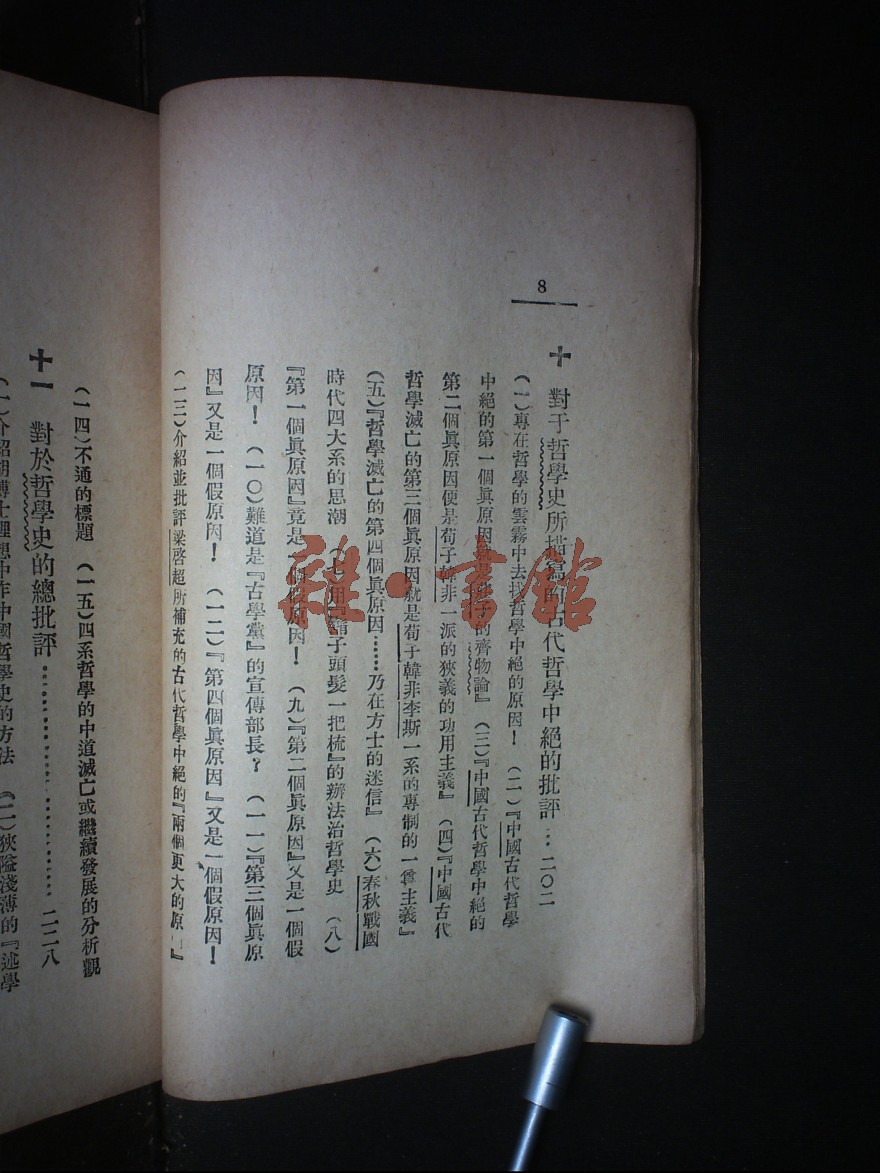 8
十 對于哲學史所描寫的古代哲學中絕的批評…二〇二
(一)專在哲學的雲霧中去找哲學中絕的原因! (二)『中國古代哲學
中絕的第一個眞原因就是莊子的齊物論』 (三)『中國古代哲學中絕的
第二個眞原因便是荀子韓非一派的狹義的功用主義』 (四)『中國古代
哲學滅亡的第三個眞原因就是荀子韓非李斯一系的專制的一尊主義』
(五)『哲學滅亡的第四個眞原因……乃在方士的迷信』 (六)春秋戰國
時代四大系的思潮 (七)用『鬍子頭髮一把梳』的辦法治哲學史 (八)
『第一個眞原因』竟是一個假原因! (九)『第二個眞原因』又是一個假
原因! (一〇)難道是『古學黨』的宣傳部長? (一一)『第三個眞原
因』又是一個假原因! (一二)『第四個眞原因』又是一個假原因!
(一三)介紹並批評梁啓超所補充的古代哲學中絕的『兩個更大的原 』
(一四)不通的標題 (一五)四系哲學的中道滅亡或繼續發展的分析觀
十一 對於哲學史的總批評……………………二二八
(一)介紹胡博士理想中作中國哲學史的方法 (二)狹隘淺薄的『述學
雜·書館